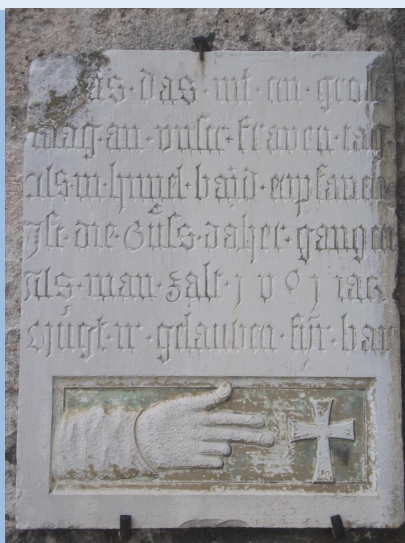 as · das · nit · ein · gross
klag · an · vnser · frawen · tag
als · in · hymel · ward · enpfangen
Ist · die · Güss · daher · gangen
Als · man · zalt · j v 0 j iar
Mügt · ir · gelauben · für · bar